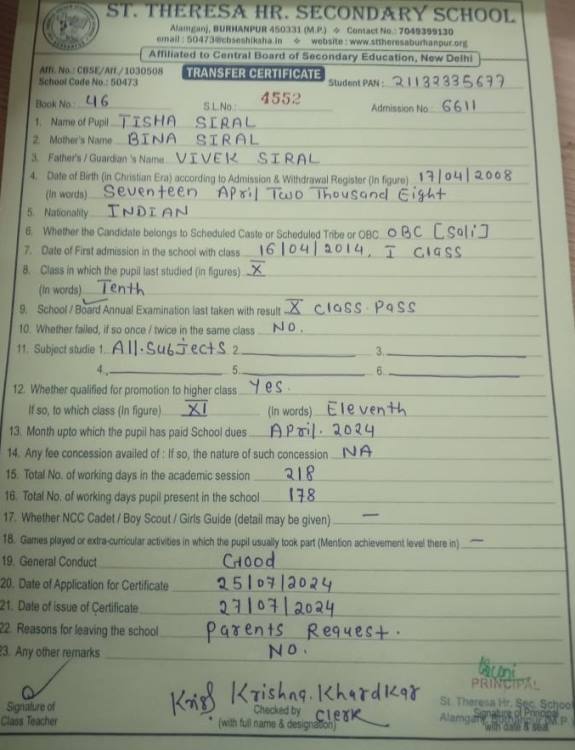 ST. THERESA HR. SECONDARY SCHOOL
Alamganj, BURHANPUR 450331 (M.P.) ✧ Contact No.: 7049399130
email : 50473@cbseshiksha.in ✧ website : www.sttheresaburhanpur.org
Affiliated to Central Board of Secondary Education, New Delhi
Affi. No.: CBSE/Aff./1030508
School Code No.: 50473
TRANSFER CERTIFICATE
Student PAN : 21132335677
Book No.: 46 S.L.No.: 4552 Admission No. 6611
1. Name of Pupil TISHA SIRAL
2. Mother's Name BINA SIRAL
3. Father's / Guardian 's Name VIVEK SIRAL
4. Date of Birth (in Christian Era) according to Admission & Withdrawal Register (In figure) 17/04/2008
(In words) Seventeen April Two Thousand Eight
5. Nationality INDIAN
6. Whether the Candidate belongs to Scheduled Caste or Scheduled Tribe or OBC OBC [Sali]
7. Date of First admission in the school with class 16/04/2014, I Class
8. Class in which the pupil last studied (in figures) X
(In words) Tenth
9. School / Board Annual Examination last taken with result X Class Pass
10. Whether failed, if so once / twice in the same class NO.
11. Subject studie 1. All. Subjects 2. 3.
4. 5. 6.
12. Whether qualified for promotion to higher class Yes.
If so, to which class (In figure) XI (In words) Eleventh
13. Month upto which the pupil has paid School dues April. 2024
14. Any fee concession availed of : If so, the nature of such concession NA
15. Total No. of working days in the academic session 218
16. Total No. of working days pupil present in the school 178
17. Whether NCC Cadet / Boy Scout / Girls Guide (detail may be given) —
18. Games played or extra-curricular activities in which the pupil usually took part (Mention achievement level there in) —
19. General Conduct Good
20. Date of Application for Certificate 25/07/2024
21. Date of issue of Certificate 27/07/2024
22. Reasons for leaving the school Parents Request.
23. Any other remarks NO.
PRINCIPAL
Krishna. Khardkar
St. Theresa Hr. Sec. School
Signature of Checked by Clerk Signature of Principal
Class Teacher (with full name & designation) with date & seal